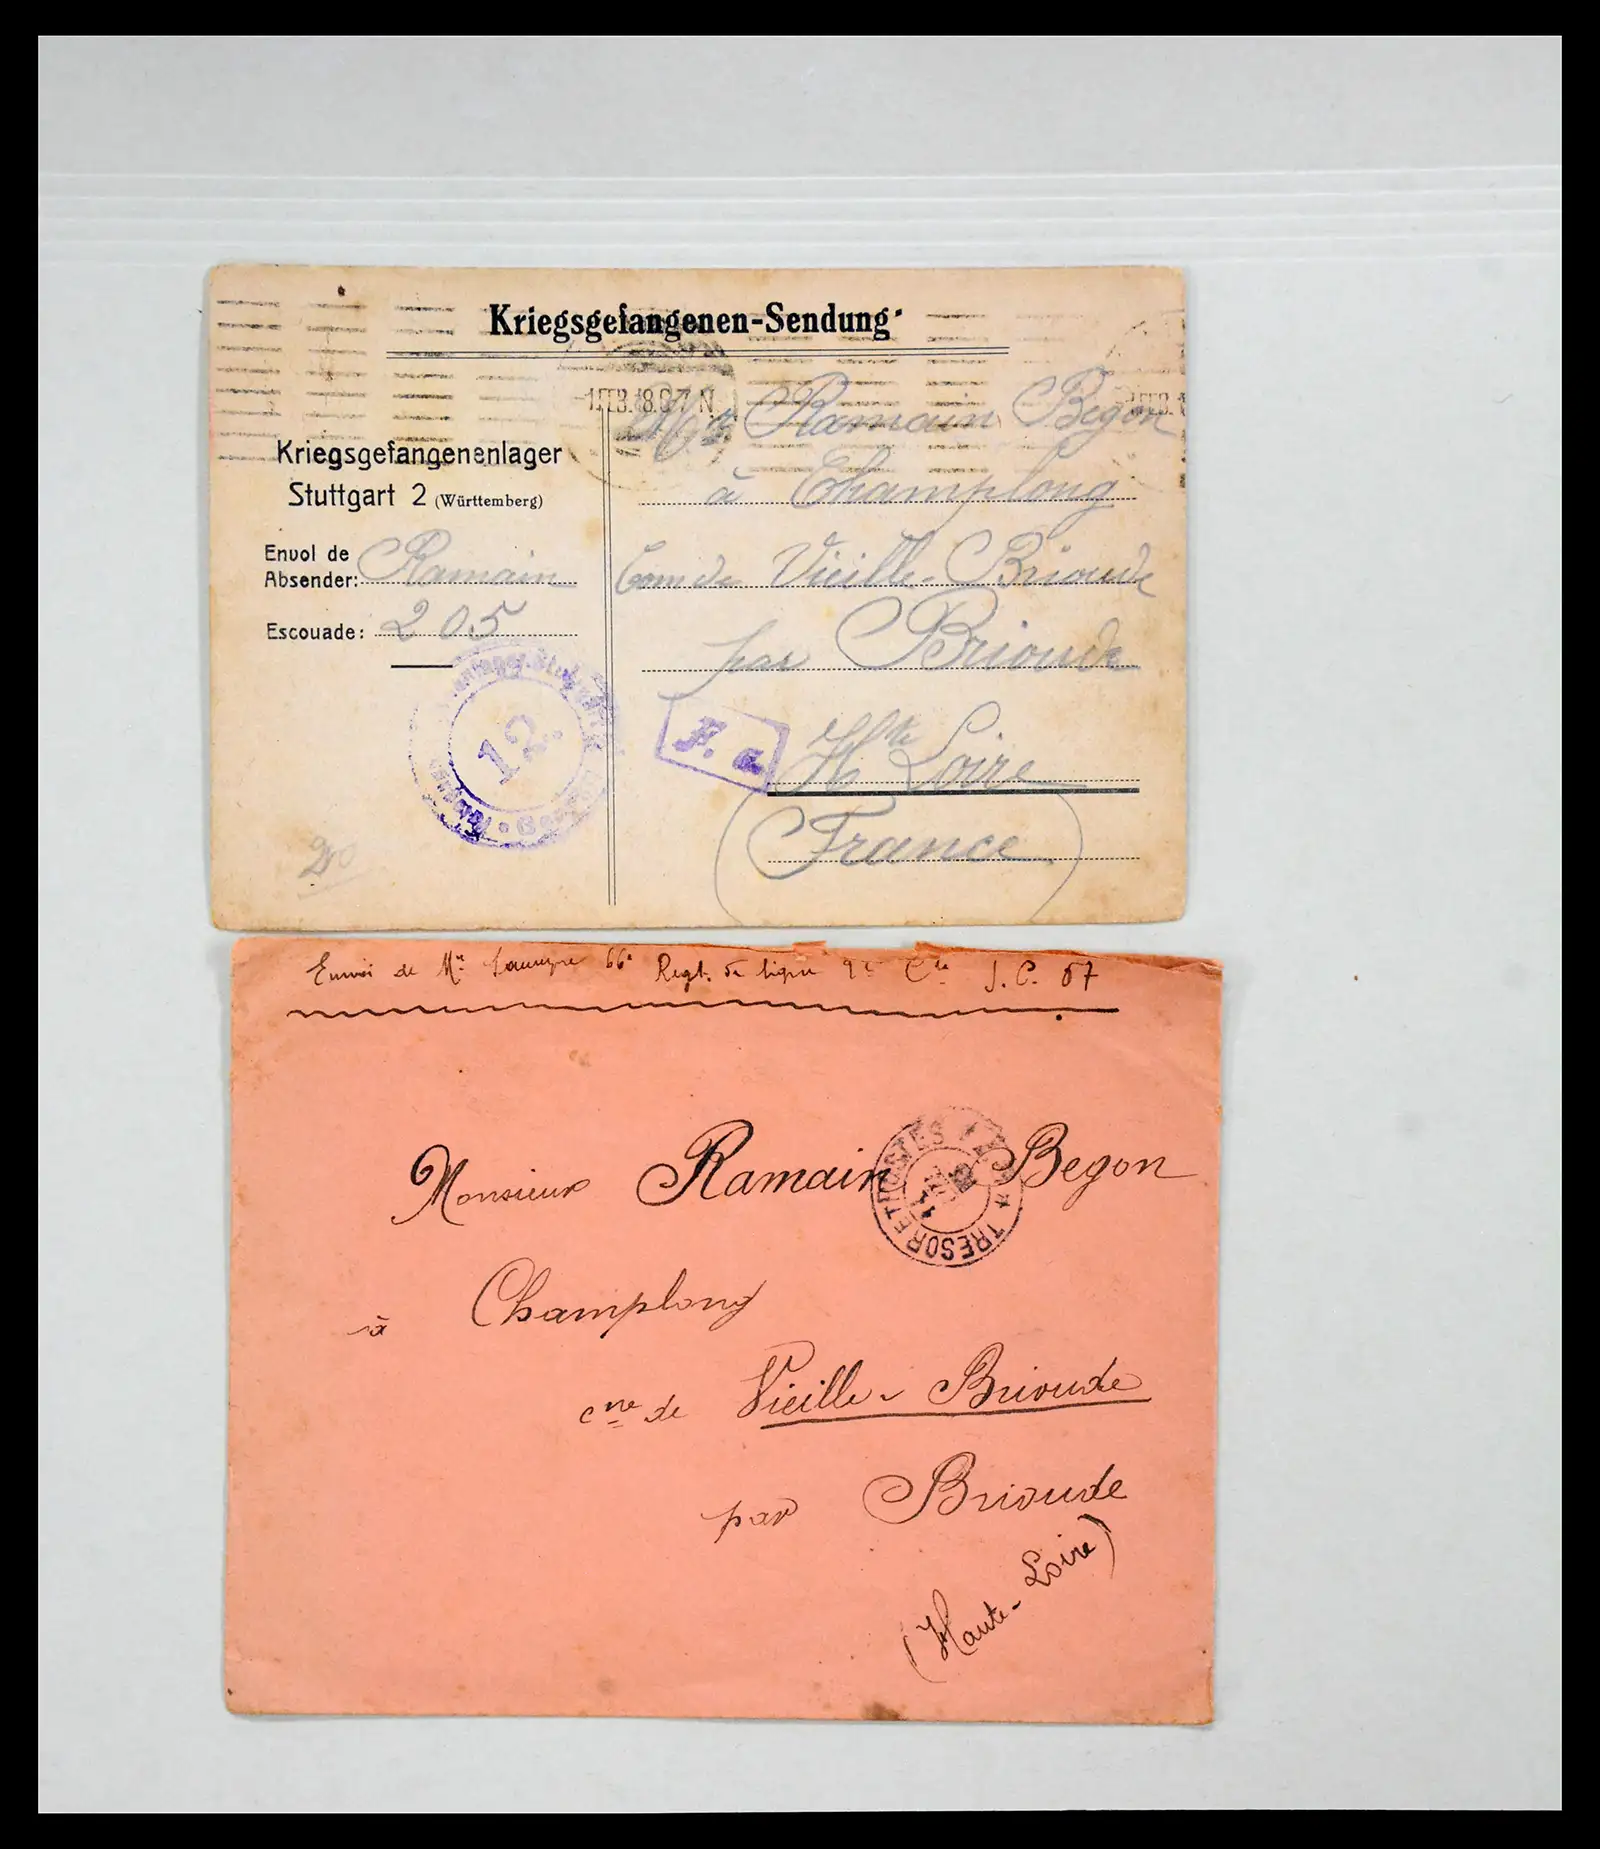 Kriegsgefangenen-Sendung
1.FEB.18. 6-7 N.
Mr Ramain Begon
à Champlong
Com de Vieille-Brioude
par Brioude
Hte Loire
France
Kriegsgefangenenlager
Stuttgart 2 (Württemberg)
Envoi de
Absender: Ramain
Escouade: 205
12.
F. a.
20
Envoi de Mr 66e Regt. de ligne 9e Cie S.C. 87
Monsieur Ramain Begon
TRESOR ET POSTES
à Champlong
cne de Vieille-Brioude
par Brioude
(Haute-Loire)